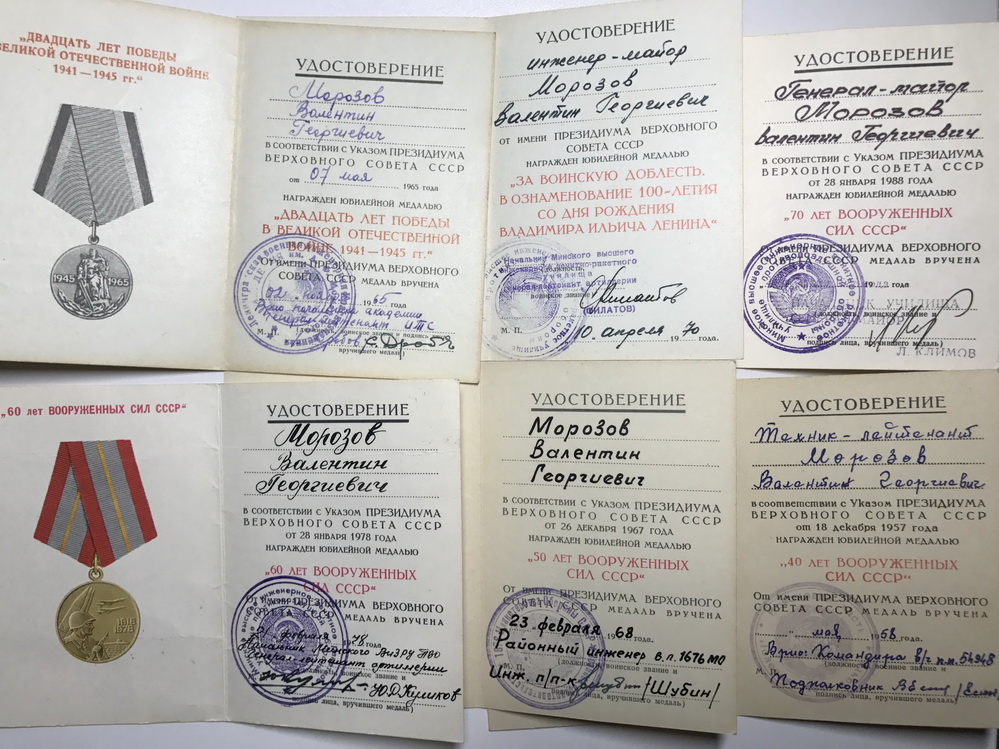 „ДВАДЦАТЬ ЛЕТ ПОБЕДЫ
ВЕЛИКОЙ ОТЕЧЕСТВЕННОЙ ВОЙНЕ
1941—1945 гг.“
1945 1965
УДОСТОВЕРЕНИЕ
Морозов
Валентин
Георгиевич
в соответствии с Указом ПРЕЗИДИУМА
ВЕРХОВНОГО СОВЕТА СССР
от 07 мая 1965 года
НАГРАЖДЕН ЮБИЛЕЙНОЙ МЕДАЛЬЮ
„ДВАДЦАТЬ ЛЕТ ПОБЕДЫ
В ВЕЛИКОЙ ОТЕЧЕСТВЕННОЙ
ВОЙНЕ 1941—1945 гг.“
От имени ПРЕЗИДИУМА ВЕРХОВНОГО
СОВЕТА СССР МЕДАЛЬ ВРУЧЕНА
02 ноября 1965 года
Врио начальника академии
генерал-лейтенант ИТС
М. П. (должность, воинское звание и подпись
вручившего медаль)
УДОСТОВЕРЕНИЕ
инженер-майор
Морозов
Валентин Георгиевич
ОТ ИМЕНИ ПРЕЗИДИУМА ВЕРХОВНОГО
СОВЕТА СССР
НАГРАЖДЕН ЮБИЛЕЙНОЙ МЕДАЛЬЮ
„ЗА ВОИНСКУЮ ДОБЛЕСТЬ.
В ОЗНАМЕНОВАНИЕ 100-ЛЕТИЯ
СО ДНЯ РОЖДЕНИЯ
ВЛАДИМИРА ИЛЬИЧА ЛЕНИНА“
Начальник Минского высшего
инженерного зенитно-ракетного
(должность,
училища
генерал-лейтенант артиллерии
воинское звание
(ФИЛАТОВ)
М. П. 10 апреля 1970 года.
УДОСТОВЕРЕНИЕ
Генерал-майор
Морозов
Валентин Георгиевич
в соответствии с Указом ПРЕЗИДИУМА
ВЕРХОВНОГО СОВЕТА СССР
от 28 января 1988 года
НАГРАЖДЕН ЮБИЛЕЙНОЙ МЕДАЛЬЮ
„70 ЛЕТ ВООРУЖЕННЫХ
СИЛ СССР“
От имени ПРЕЗИДИУМА ВЕРХОВНОГО
СОВЕТА СССР МЕДАЛЬ ВРУЧЕНА
УЧИЛИЩА
воинское звание и
МАЙОР
подпись лица, вручившего медаль)
Л. КЛИМОВ
„60 лет ВООРУЖЕННЫХ СИЛ СССР“
1918
1978
УДОСТОВЕРЕНИЕ
Морозов
Валентин
Георгиевич
в соответствии с Указом ПРЕЗИДИУМА
ВЕРХОВНОГО СОВЕТА СССР
от 28 января 1978 года
НАГРАЖДЕН ЮБИЛЕЙНОЙ МЕДАЛЬЮ
„60 ЛЕТ ВООРУЖЕННЫХ
СИЛ СССР“
От имени ПРЕЗИДИУМА ВЕРХОВНОГО
СОВЕТА СССР МЕДАЛЬ ВРУЧЕНА
февраля 1978
Начальник Минского ВИЗРУ ПВО
генерал-лейтенант артиллерии
Ю.А.Куликов
подпись лица, вручившего медаль)
УДОСТОВЕРЕНИЕ
Морозов
Валентин
Георгиевич
в соответствии с Указом ПРЕЗИДИУМА
ВЕРХОВНОГО СОВЕТА СССР
от 26 декабря 1967 года
НАГРАЖДЕН ЮБИЛЕЙНОЙ МЕДАЛЬЮ
„50 ЛЕТ ВООРУЖЕННЫХ
СИЛ СССР“
От имени ПРЕЗИДИУМА ВЕРХОВНОГО
СОВЕТА СССР МЕДАЛЬ ВРУЧЕНА
23 февраля 1968 года.
Районный инженер в.п. 1676 МО
М. П. (должность, воинское звание и
Инж. п/п-к /Шубин/
подпись лица, вручившего медаль)
УДОСТОВЕРЕНИЕ
Техник-лейтенант
Морозов
Валентин Георгиевич
в соответствии с Указом ПРЕЗИДИУМА
ВЕРХОВНОГО СОВЕТА СССР
от 18 декабря 1957 года
НАГРАЖДЕН ЮБИЛЕЙНОЙ МЕДАЛЬЮ
„40 ЛЕТ ВООРУЖЕННЫХ
СИЛ СССР“
От имени ПРЕЗИДИУМА ВЕРХОВНОГО
СОВЕТА СССР МЕДАЛЬ ВРУЧЕНА
мая 1958 года.
Врио: Командира в/ч п.п. 54948
М. П. (должность, военное звание и
Подполковник
подпись лица, вручившего медаль)